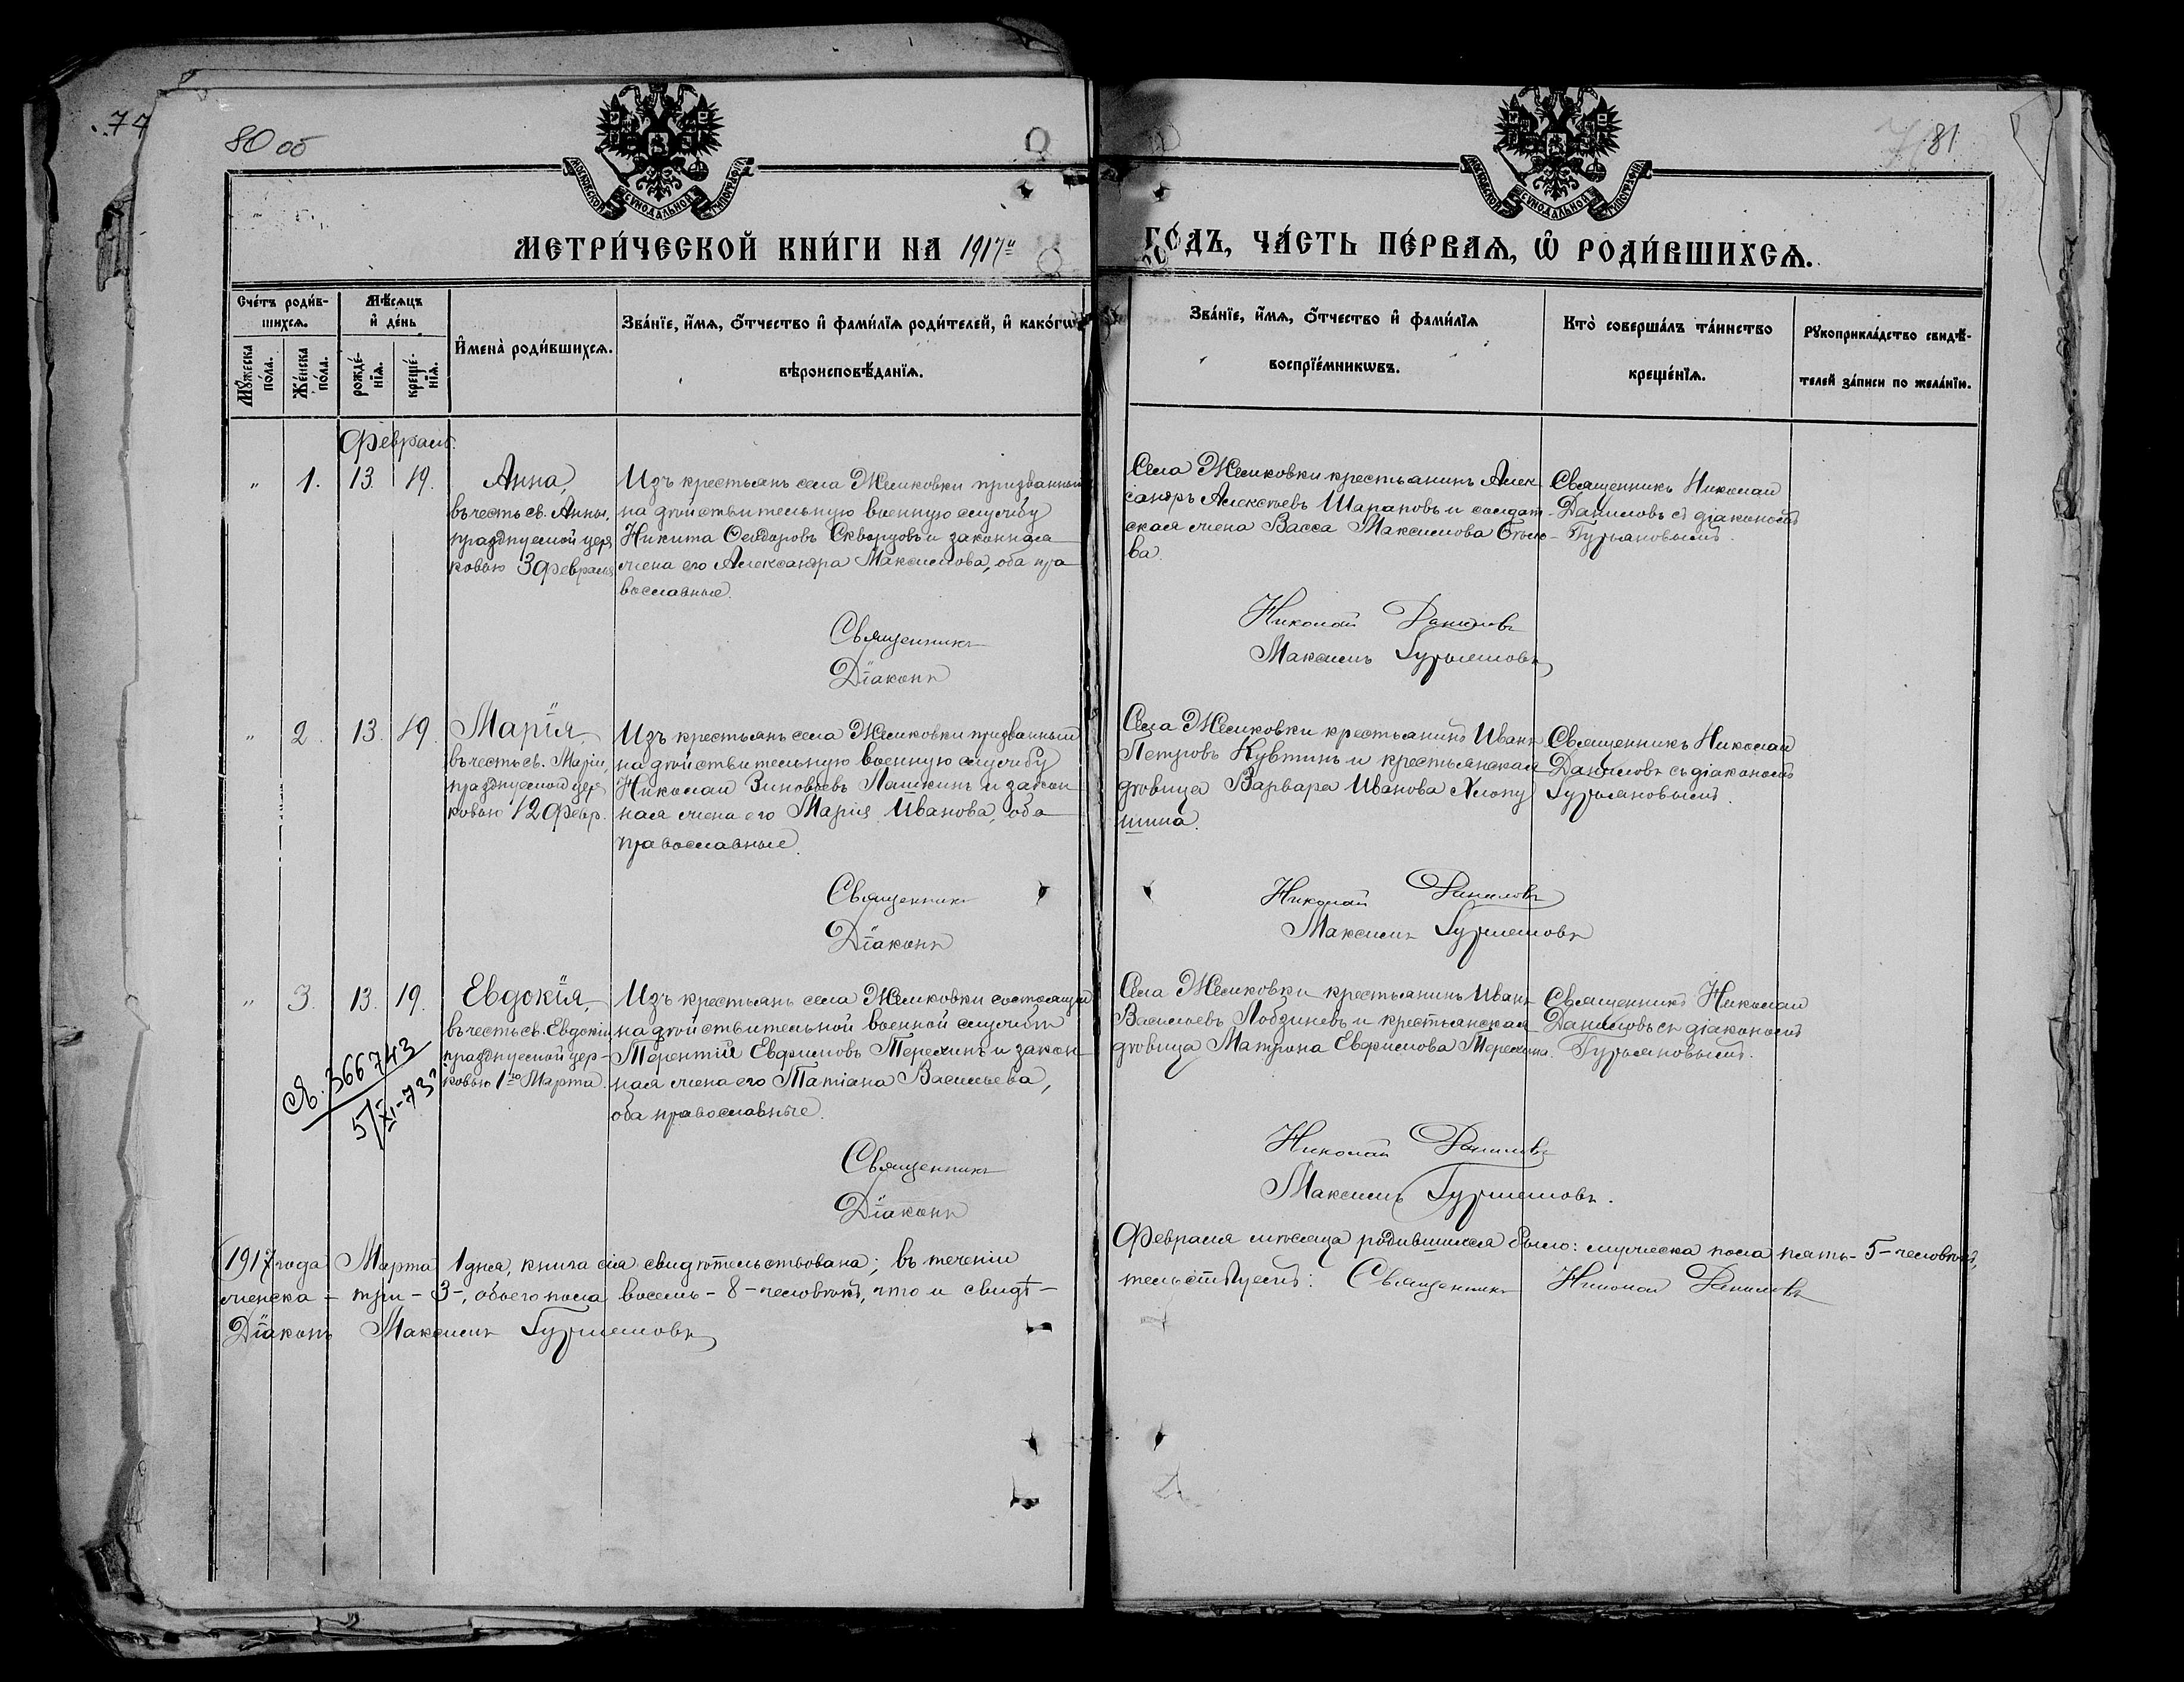 77
80 об
81
МОСКОВСКОЙ СѴНОДАЛЬНОЙ ТИПОГРАФІИ
МОСКОВСКОЙ СѴНОДАЛЬНОЙ ТИПОГРАФІИ
МЕТРИ́ЧЕСКОЙ КНИ́ГИ НА 1917й ГО́ДЪ, ЧА́СТЬ ПЕ́РВАѦ, Ѡ҆ РОДИ́ВШИХСѦ.
Сче́тъ роди́в-
шихсѧ.
Мꙋ́жеска по́ла.
Же́нска по́ла.
Мѣ́сѧцъ
и҆ де́нь
рожде́-
нїѧ.
креще́-
нїѧ.
И҆мена̀ роди́вшихсѧ.
Зва́нїе, и҆́мѧ, ѻ҆́тчество и҆ фами́лїѧ роди́телей, и҆ како́гѡ
вѣроисповѣ́данїѧ.
Зва́нїе, и҆́мѧ, ѻ҆́тчество и҆ фами́лїѧ
воспрїе́мникѡвъ.
Кто̀ соверша́лъ та́инство
креще́нїѧ.
Рꙋкоприкла́дство свидѣ́-
телей за́писи по жела́нїю.
Февраль.
" 1. 13. 19.
Анна,
въ честь св. Анны,
празднуемой цер
ковью 3 февраля
Изъ крестьянъ села Жемковки призванный
на дѣйствительную военную службу
Никита Ѳеодоровъ Скворцовъ и законная
жена его Александра Максимова, оба пра
вославные.
Села Жемковки крестьянинъ Алек
сандръ Алексѣевъ Шараповъ и солдат
ская жена Васса Максимова
ва.
Священникъ Николай
Даниловъ съ діакономъ
Гурьяновымъ.
Священникъ Николай Даниловъ
Діаконъ Максимъ
" 2. 13. 19.
Марія,
въ честь св. Маріи,
празднуемой цер
ковью 12 Февр.
Изъ крестьянъ села Жемковки призванный
на дѣйствительную военную службу
Николай Зиновьевъ Лашкинъ и закон
ная жена его Марія Иванова, оба
православные.
Села Жемковки крестьянинъ Иванъ
Петровъ и крестьянская
дѣвица Варвара Иванова
Священникъ Николай
Даниловъ съ діакономъ
Гурьяновымъ.
Священникъ Николай Даниловъ
Діаконъ Максимъ
" 3. 13. 19.
Евдокія,
въ честь св. Евдокіи,
празднуемой цер-
ковью 1го Марта.
Св. 366743
5/XI-73г
Изъ крестьянъ села Жемковки состоящій
на дѣйствительной военной службѣ
Терентій Евфимовъ Терехинъ и закон-
ная жена его Татіана Васильева,
оба православные.
Села Жемковки крестьянинъ Иванъ
Васильевъ Лобзиневъ и крестьянская
дѣвица Матрона Евфимова Терехина.
Священникъ Николай
Даниловъ съ діакономъ
Гурьяновымъ.
Священникъ Николай Даниловъ
Діаконъ Максимъ
1917 года Марта 1 дня, книга сія свидѣтельствована; въ теченіи Февраля мѣсяца родившихся было: мужеска пола пять - 5 - человѣкъ,
женска - три - 3 -, обоего пола восемь - 8 - человѣкъ, что и свидѣ- тельствуемъ: Священникъ Николай Даниловъ
Діаконъ Максимъ